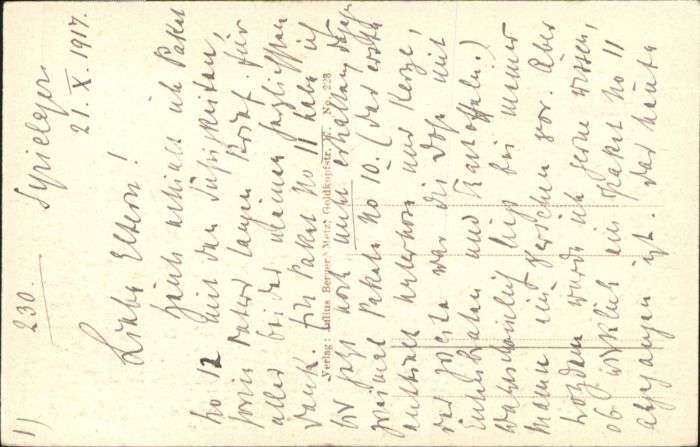 1) 230.
21. X. 1917.
Liebe Eltern!
Heute erhielt ich Paket
No 12 mit den Süßigkeiten,
sowie Vaters langen Brief. Für
alles meinen herzlichsten
Dank. Ein Paket No 11 habe ich
bis jetzt noch nicht erhalten, dafür
zweimal Pakete No 10. (Das erste
enthielt Unterhose und Kerze,
das zweite war die Dose mit
Entenbraten und Kartoffeln.)
Wahrscheinlich liegt bei meiner
Mama ein Versehen vor. Aber
trotzdem würde ich gerne wissen,
ob wirklich ein Paket No 11
abgegangen ist. Das heute
Verlag: Julius Berger, Metz, Goldkopfstr. No. 228